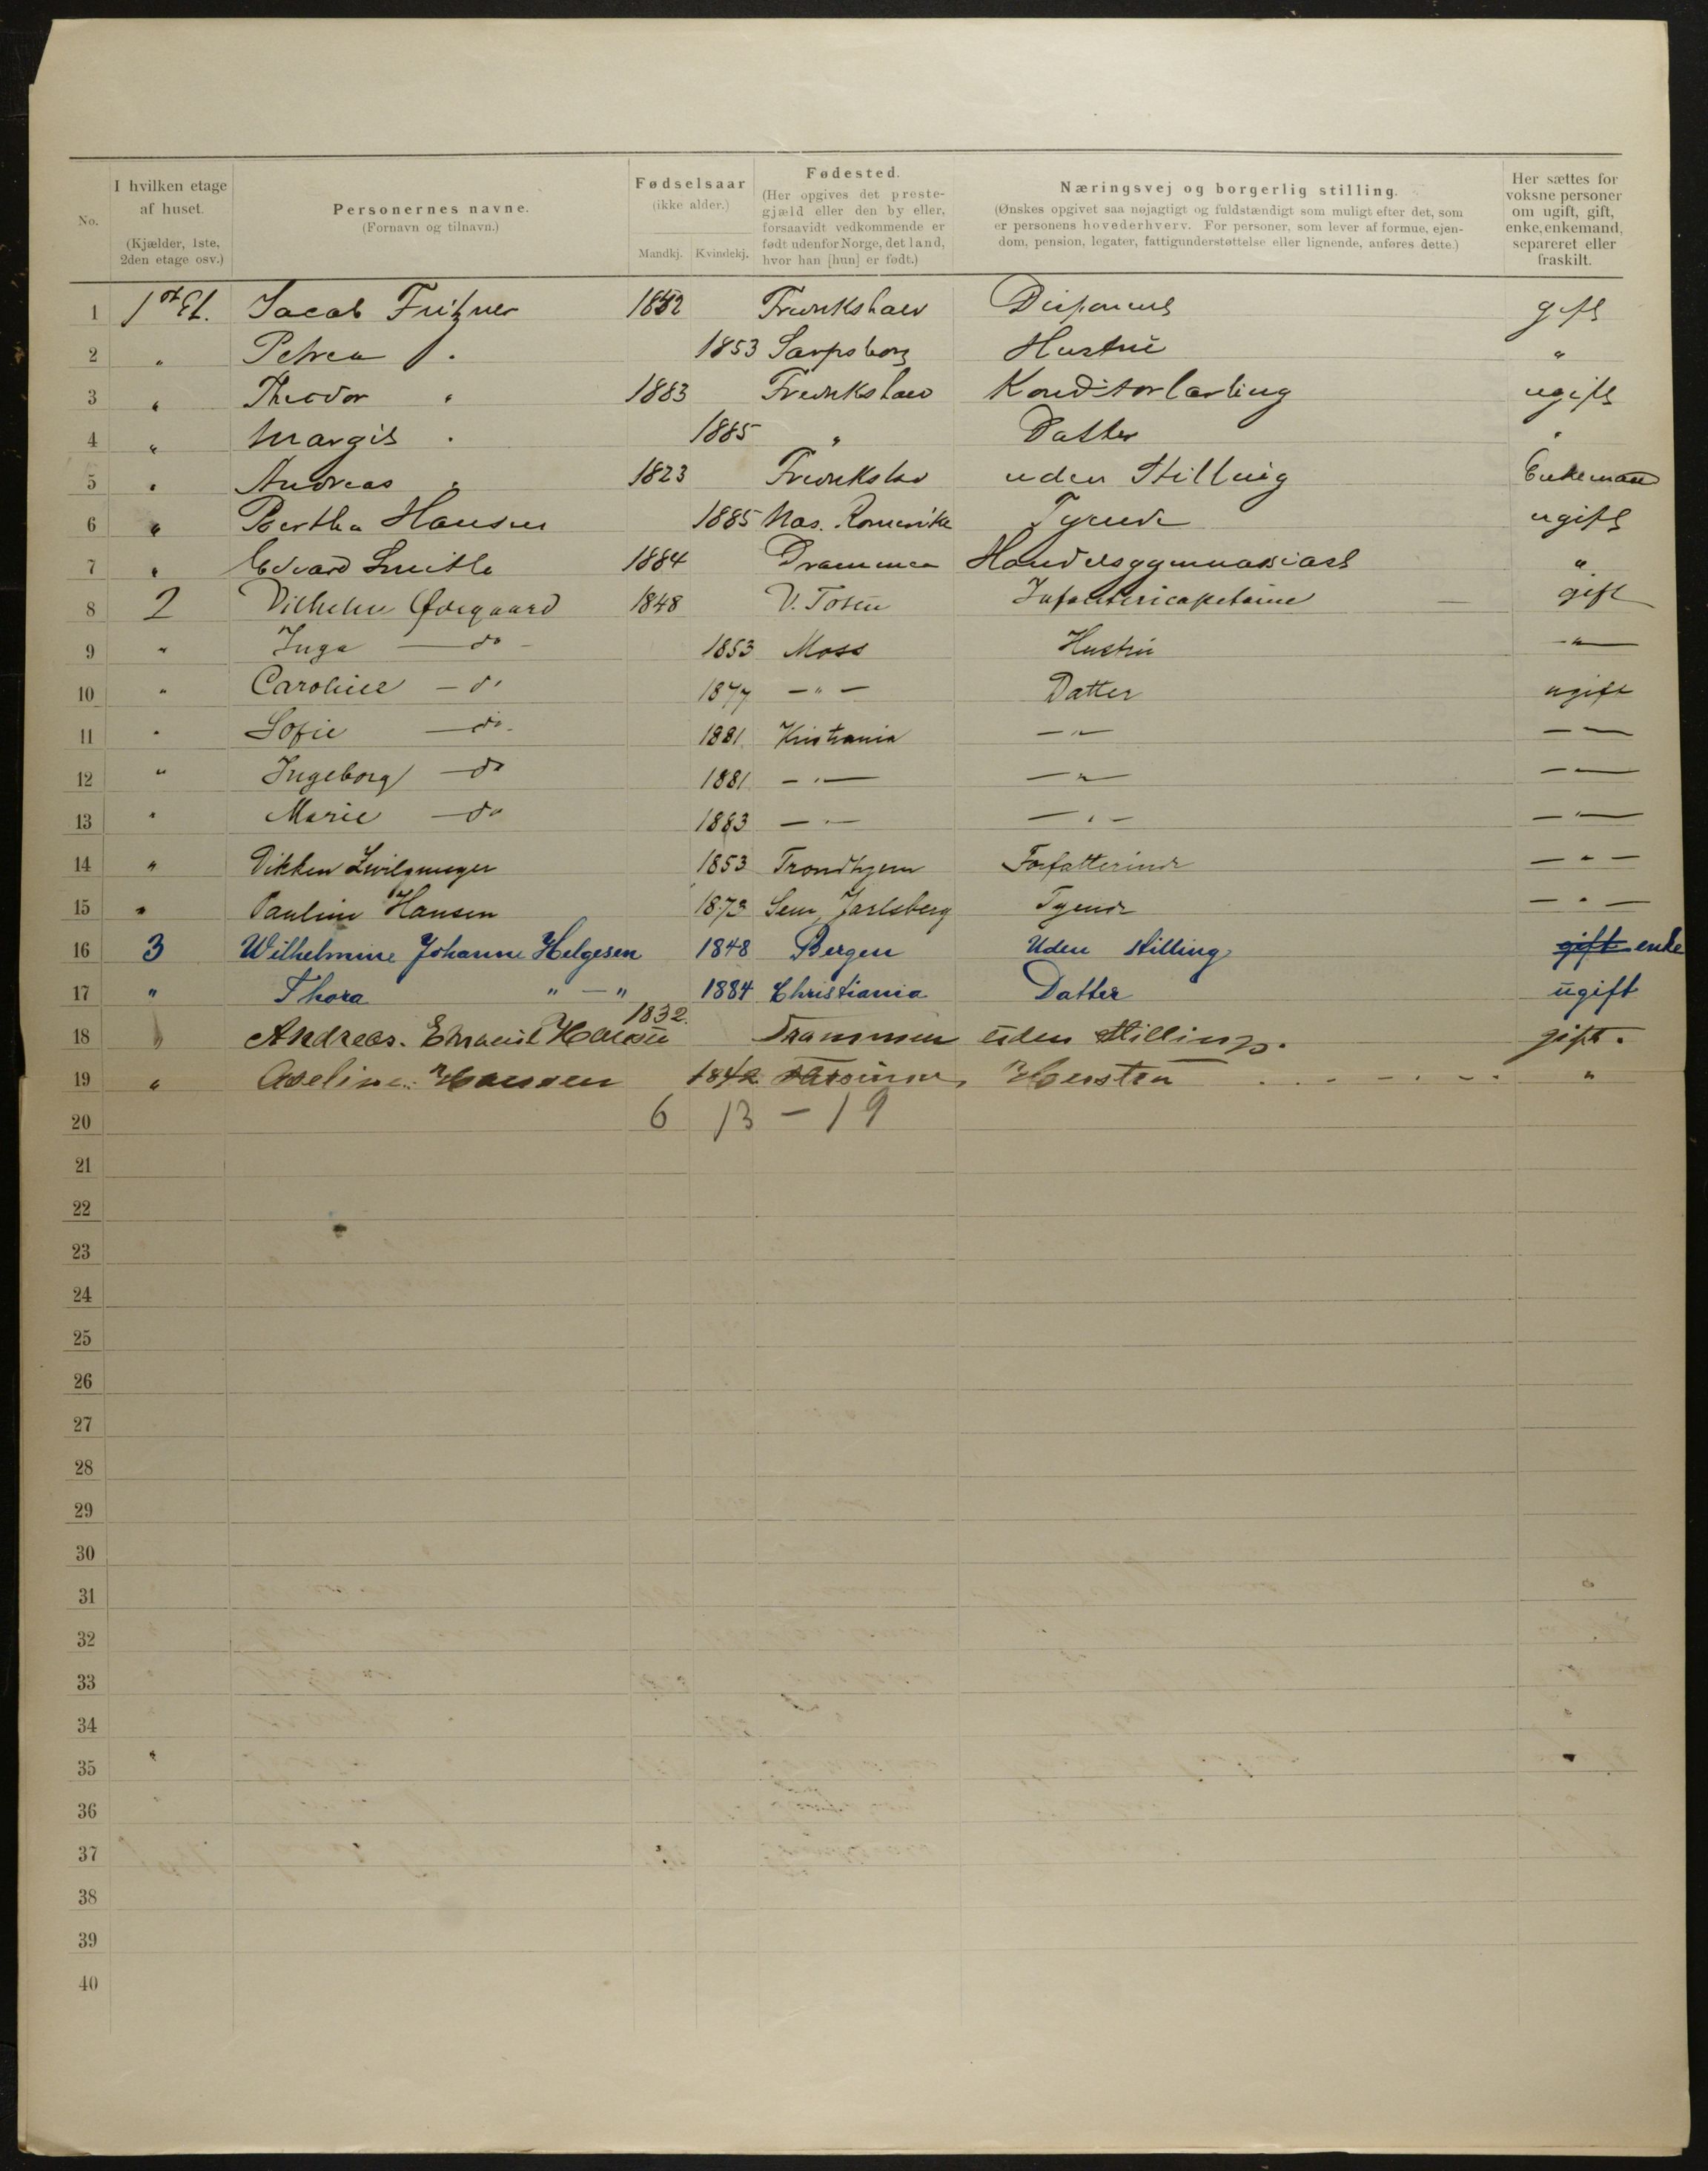 No.
I hvilken etage af huset. (Kjælder, 1ste, 2den etage osv.)
Personernes navne. (Fornavn og tilnavn.)
Fødselsaar (ikke alder.) Mandkj. Kvindekj.
Fødested. (Her opgives det prestegjæld eller den by eller, forsaavidt vedkommende er født udenfor Norge, det land, hvor han [hun] er født.)
Næringsvej og borgerlig stilling. (Ønskes opgivet saa nøjagtigt og fuldstændigt som muligt efter det, som er personens hovederhverv. For personer, som lever af formue, ejendom, pension, legater, fattigunderstøttelse eller lignende, anføres dette.)
Her sættes for voksne personer om ugift, gift, enke, enkemand, separeret eller fraskilt.
1 1st Et. Jacob Fritzner 1852 Fredrikshald Disponent gift
2 " Petrea " 1853 Sarpsborg Hustru "
3 " Theodor " 1883 Fredrikshald Konditorlærling ugift
4 " Margit " 1885 " Datter "
5 " Andreas " 1823 uden Stilling Enkemand
6 " Bertha Hansen 1885 Næs. Romerike Tyende ugift
7 " Edvard Smith 1884 Drammen Handelsgymnasiast "
8 2 Vilhelm Ødegaard 1848 V. Toten Infantericapitaine gift
9 " Inga — do — 1853 Moss Hustru — " —
10 " Caroline — do 1877 — " — Datter ugift
11 " Sofie — do 1881 Kristiania — " — — " —
12 " Ingeborg — do 1881 — " — — " — — " —
13 " Marie — do 1883 — " — — " — — " —
14 " Dikken Zwilgmeyer 1853 Trondhjem Forfatterinde — " —
15 " Pauline Hansen 1873 Sem, Jarlsberg Tyende — " —
16 3 Wilhelmine Johanne Helgesen 1848 Bergen Uden stilling gift enke
17 " Thora " — " 1884 Christiania Datter ugift
18 " Andreas. Hansen 1832. Drammen uden Stilling. gift.
19 " Hansen 1842 "
20 6 13 – 19
21
22
23
24
25
26
27
28
29
30
31
32
33
34
35
36
37
38
39
40